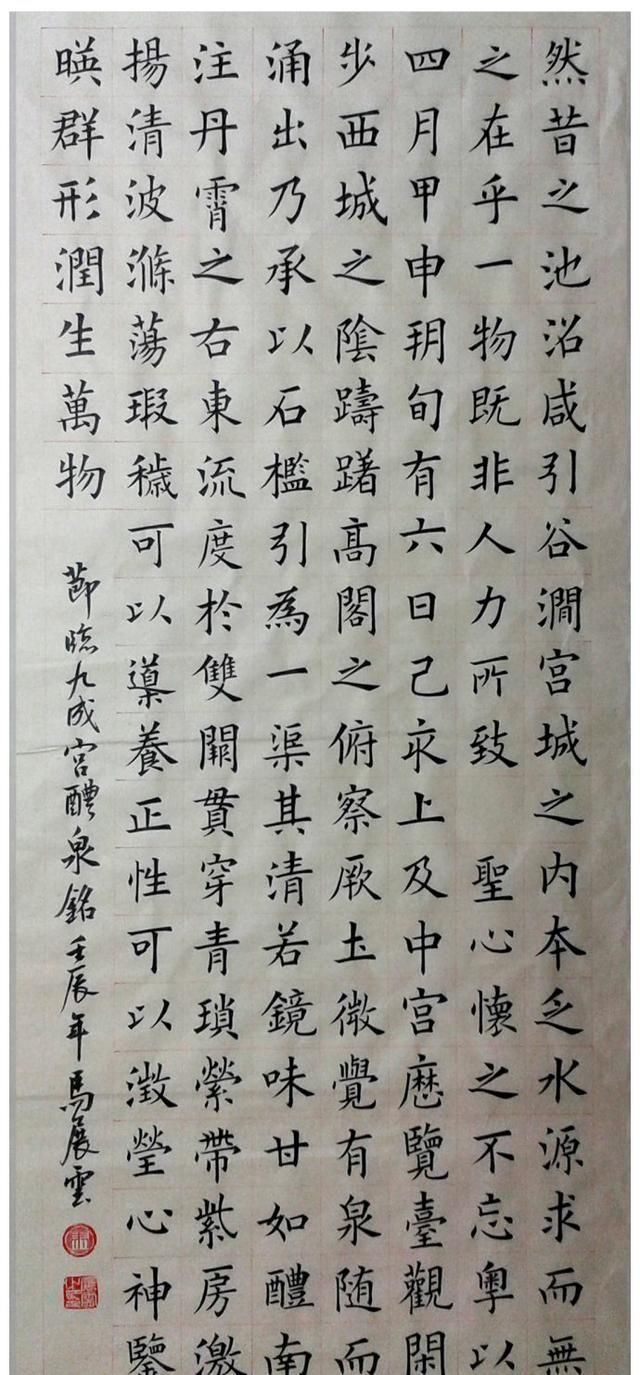 然昔之池沼咸引谷澗宮城之内本乏水源求而無
之在乎一物既非人力所致聖心懷之不忘粤以
四月甲申朔旬有六日己亥上及中宮歷覽臺觀閑
步西城之陰躊躇高閣之俯察厥土微覺有泉随而
涌出乃承以石檻引為一渠其清若鏡味甘如醴南
注丹霄之右東流度於雙闕貫穿青瑣縈帶紫房激
揚清波滌蕩瑕穢可以導養正性可以澂瑩心神鑒
暎群形潤生萬物
節臨九成宮醴泉銘壬辰年馬展雲